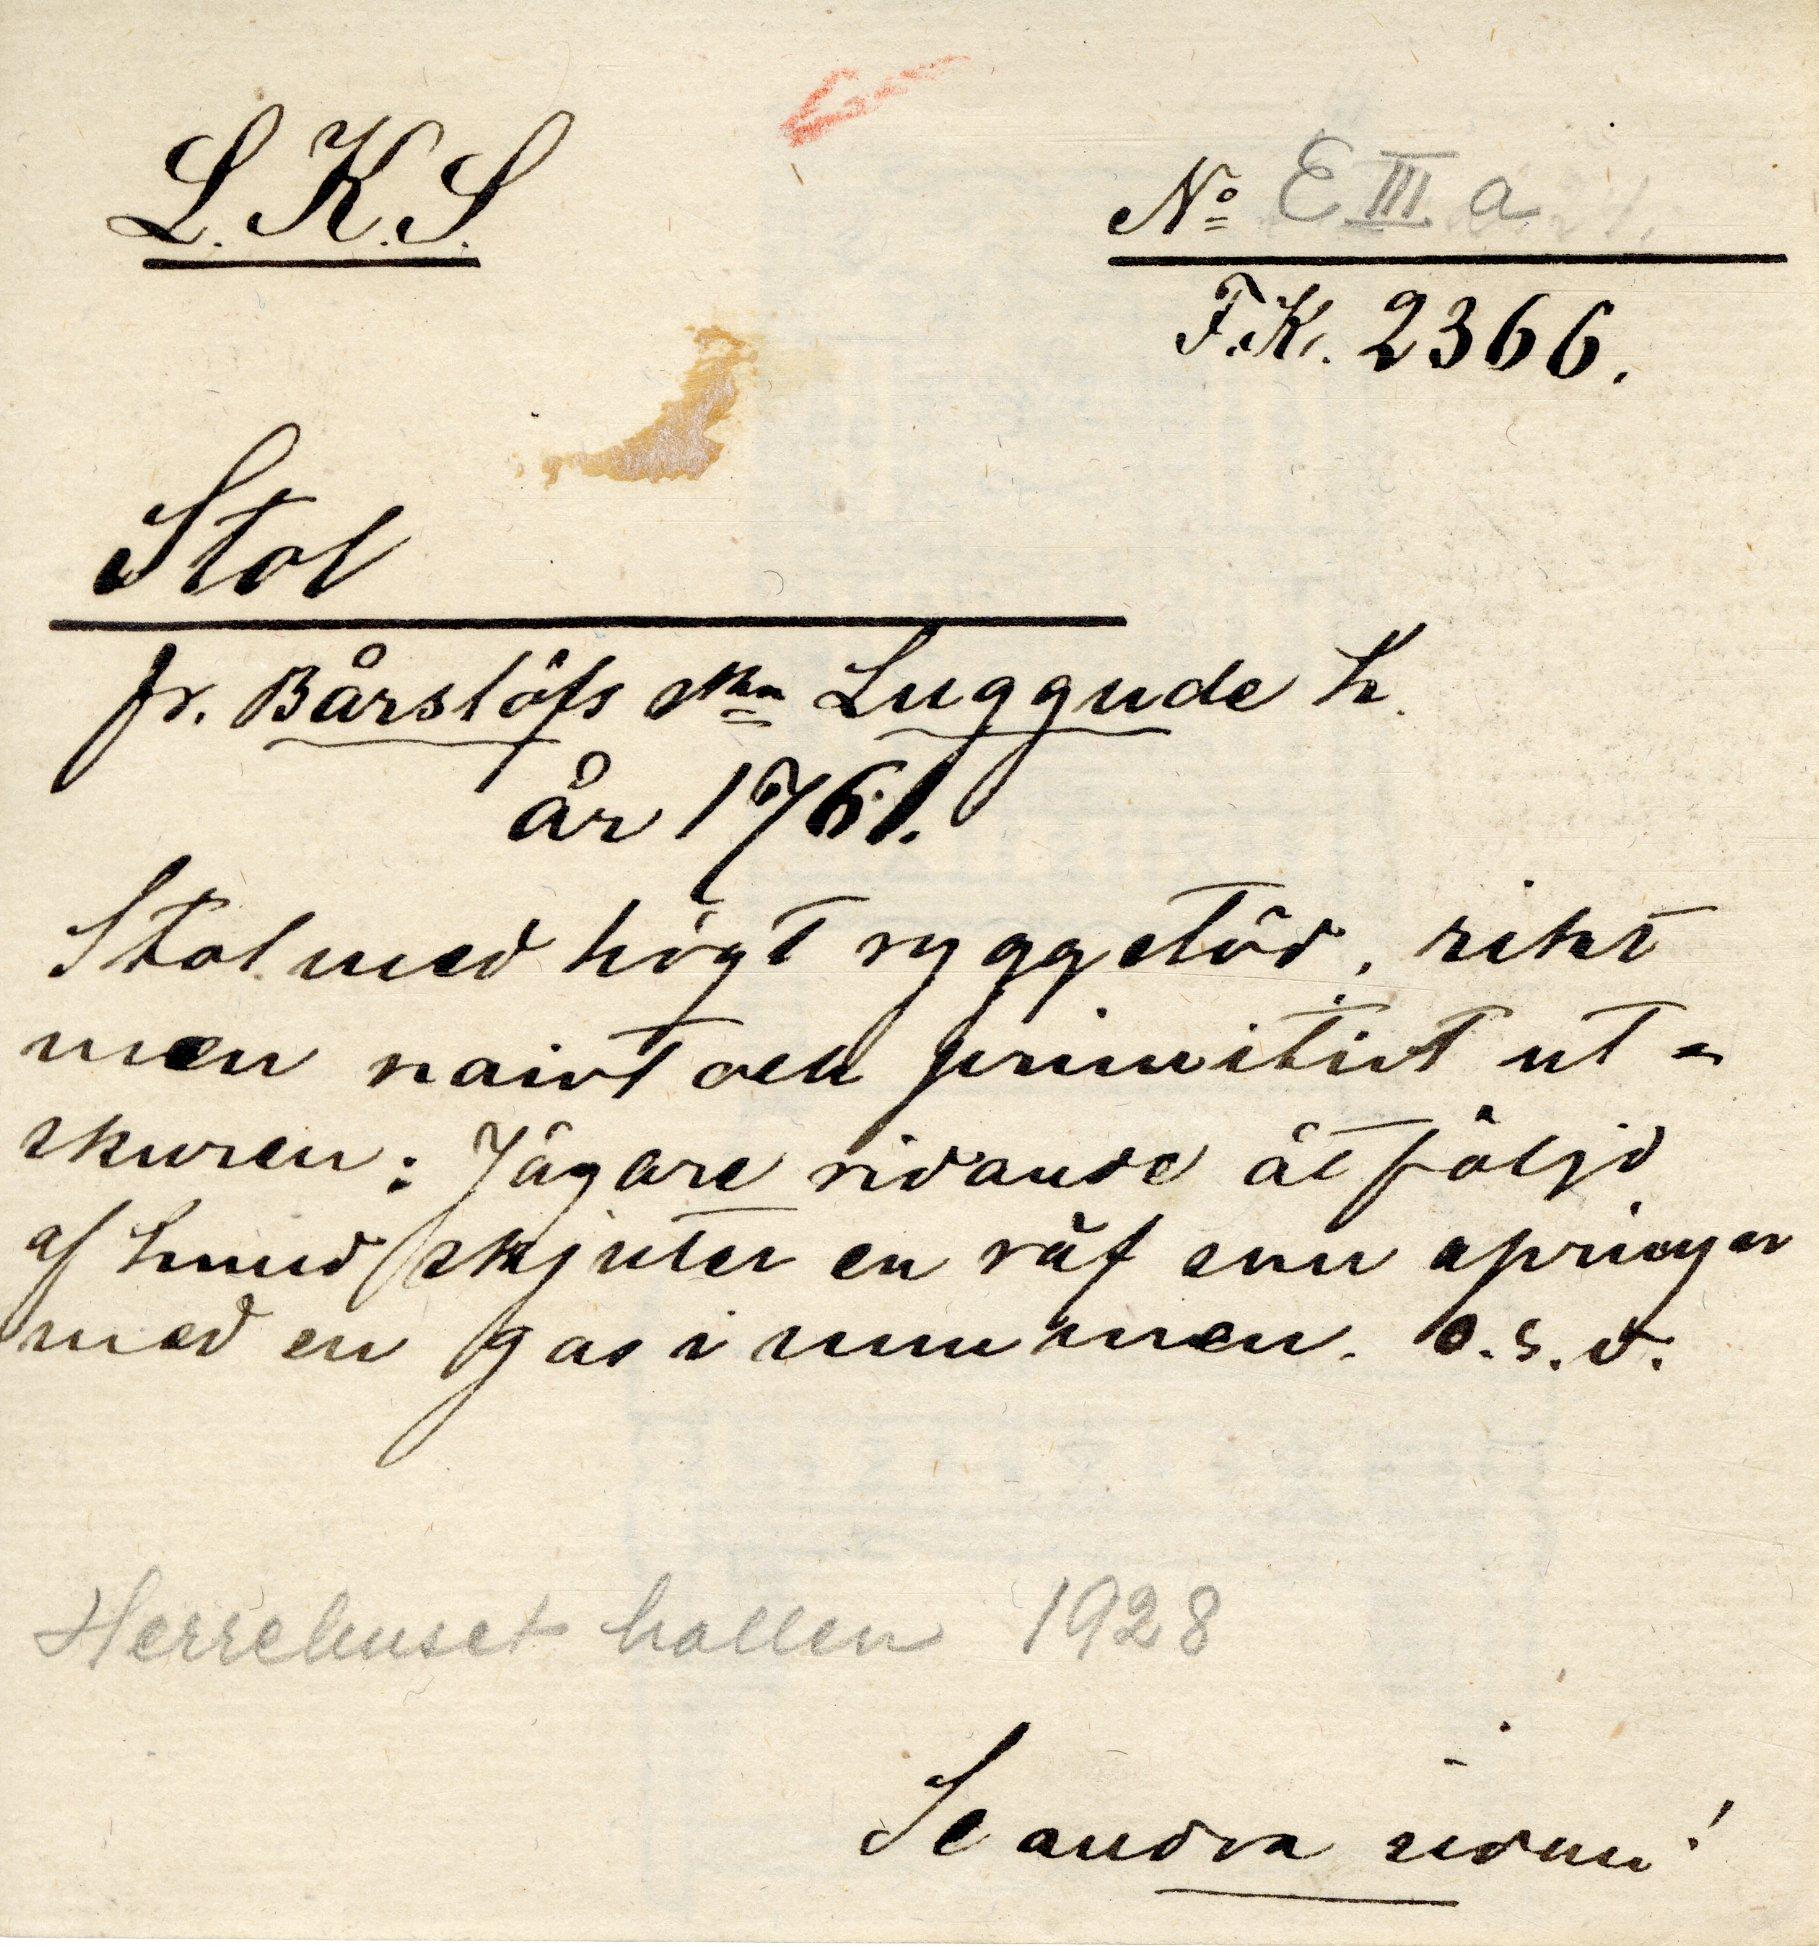 L.K.S.
No E III a
F.K. 2366.
Stol
fr. Bårslöfs skn Luggude h.
år 1761.
Stol med högt ryggstöd, rikt
men naivt och primitivt ut=
skuren: Jägare ridande åtföljd
af hund skjuter en räf som springer
med en gås i munnen. o.s.v.
Herrehuset hallen 1928
Se andra sidan!